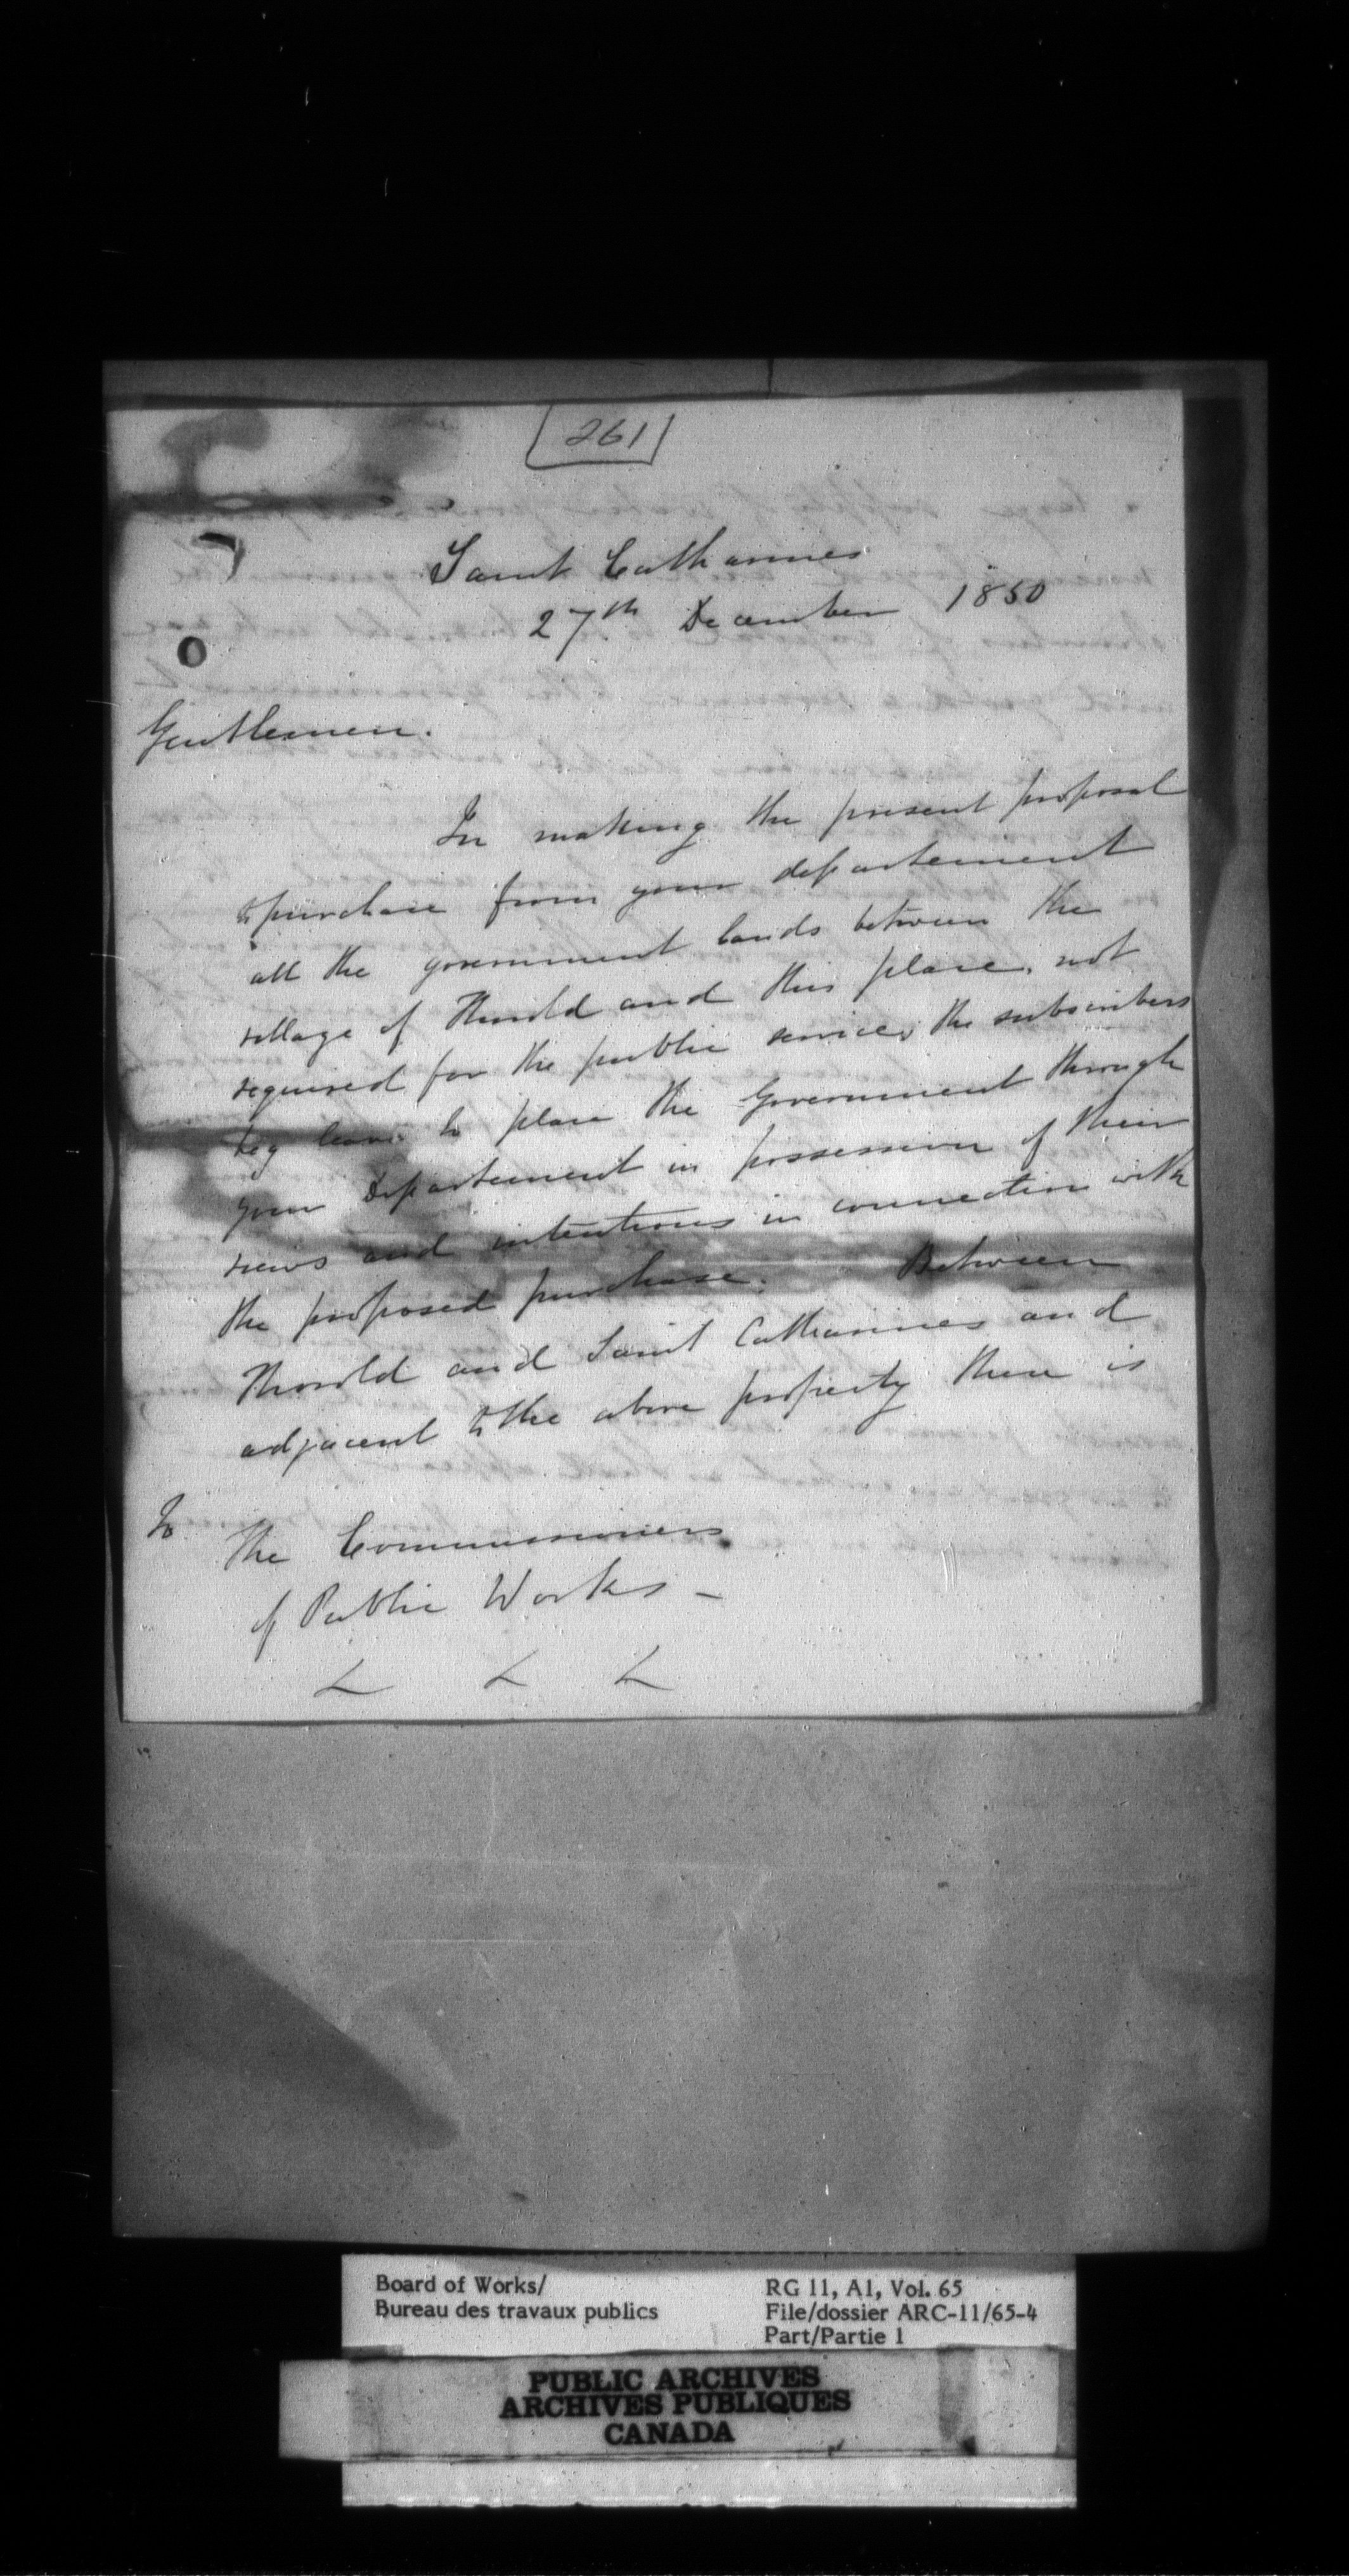 261
Saint Catharines
27th December 1850
Gentlemen.
In making the present proposal
to purchase from your departement
all the government lands between the
village of Thorold and this place, not
required for the public service, the subscribers
beg leave to place the Government through
your Departement in possession of their
views and intentions in connection with
the proposed purchase. Between
Thorold and Saint Catharines and
adjacent to the above property there is
To
The Commissioners
of Public Works -
Board of Works/
Bureau des travaux publics
RG 11, A1, Vol. 65
File/dossier ARC-11/65-4
Part/Partie 1
PUBLIC ARCHIVES
ARCHIVES PUBLIQUES
CANADA